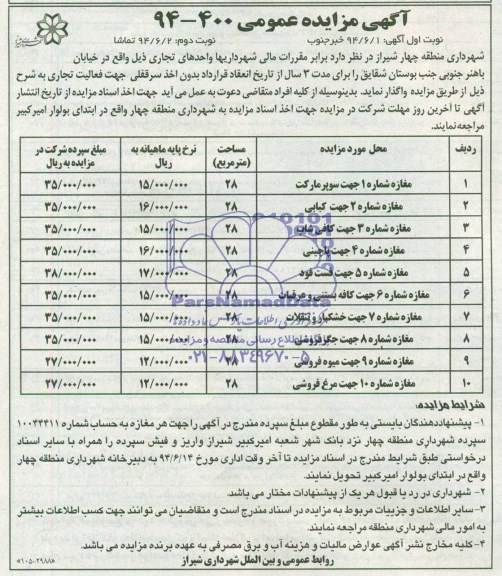 آگهی مزایده عمومی ۴۰۰-۹۴
نوبت اول آگهی: ۹۴/۶/۱ خبرجنوب
نوبت دوم: ۹۴/۶/۲ تماشا
شهرداری منطقه چهار شیراز در نظر دارد برابر مقررات مالی شهرداریها واحدهای تجاری ذیل واقع در خیابان
باهنر جنوبی جنب بوستان شقایق را برای مدت ۳ سال از تاریخ انعقاد قرارداد بدون اخذ سرقفلی جهت فعالیت تجاری به شرح
ذیل از طریق مزایده واگذار نماید. بدینوسیله از کلیه افراد متقاضی دعوت به عمل می آید جهت اخذ اسناد مزایده از تاریخ انتشار
آگهی تا آخرین روز مهلت شرکت در مزایده جهت اخذ اسناد مزایده به شهرداری منطقه چهار واقع در ابتدای بولوار امیرکبیر
مراجعه نمایند.
ردیف محل مورد مزایده مساحت (مترمربع) نرخ پایه ماهیانه به ریال مبلغ سپرده شرکت در مزایده به ریال
۱ مغازه شماره ۱ جهت سوپرمارکت ۲۸ ۱۵/۰۰۰/۰۰۰ ۳۵/۰۰۰/۰۰۰
۲ مغازه شماره ۲ جهت کبابی ۲۸ ۱۶/۰۰۰/۰۰۰ ۳۵/۰۰۰/۰۰۰
۳ مغازه شماره ۳ جهت کافی شاپ ۲۸ ۱۵/۰۰۰/۰۰۰ ۳۵/۰۰۰/۰۰۰
۴ مغازه شماره ۴ جهت ۲۸ ۱۶/۰۰۰/۰۰۰ ۳۵/۰۰۰/۰۰۰
۵ مغازه شماره ۵ جهت فست فود ۲۸ ۱۷/۰۰۰/۰۰۰ ۳۸/۰۰۰/۰۰۰
۶ مغازه شماره ۶ جهت کافه بستنی و عرقیات ۲۸ ۱۵/۰۰۰/۰۰۰ ۳۵/۰۰۰/۰۰۰
۷ مغازه شماره ۷ جهت خشکبار و تنقلات ۲۸ ۱۵/۰۰۰/۰۰۰ ۳۵/۰۰۰/۰۰۰
۸ مغازه شماره ۸ جهت جگرفروشی ۲۸ ۱۵/۰۰۰/۰۰۰ ۳۵/۰۰۰/۰۰۰
۹ مغازه شماره ۹ جهت میوه فروشی ۲۸ ۱۲/۰۰۰/۰۰۰ ۲۷/۰۰۰/۰۰۰
۱۰ مغازه شماره ۱۰ جهت مرغ فروشی ۲۸ ۱۲/۰۰۰/۰۰۰ ۲۷/۰۰۰/۰۰۰
ParsNamadData
۰۲۱-۸۸۳۴۹۶۷۰-۵
شرایط مزایده:
۱- پیشنهاددهندگان بایستی به طور مقطوع مبلغ سپرده مندرج در آگهی را جهت هر مغازه به حساب شماره ۱۰۰۴۴۴۱۱
سپرده شهرداری منطقه چهار نزد بانک شهر شعبه امیرکبیر شیراز واریز و فیش سپرده را همراه با سایر اسناد
درخواستی طبق شرایط مندرج در اسناد مزایده تا آخر وقت اداری مورخ ۹۴/۶/۱۴ به دبیرخانه شهرداری منطقه چهار
واقع در ابتدای بولوار امیرکبیر تحویل نمایند.
۲- شهرداری در رد یا قبول هر یک از پیشنهادات مختار می باشد.
۳- سایر اطلاعات و جزییات مربوط به مزایده در اسناد مندرج است و متقاضیان می توانند جهت کسب اطلاعات بیشتر
به امور مالی شهرداری منطقه مراجعه نمایند.
۴- کلیه مخارج نشر آگهی عوارض مالیات و هزینه آب و برق مصرفی به عهده برنده مزایده می باشد.
روابط عمومی و بین الملل شهرداری شیراز